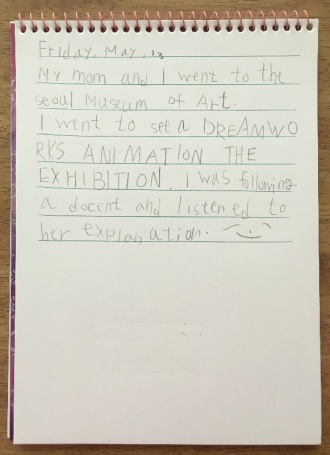 Friday, May, 13
My mom and I went to the
seoul Museum of Art.
I went to see a DREAMWO
RKS ANIMATION THE
EXHIBITION. I was following
a docent and listened to
her explanation.